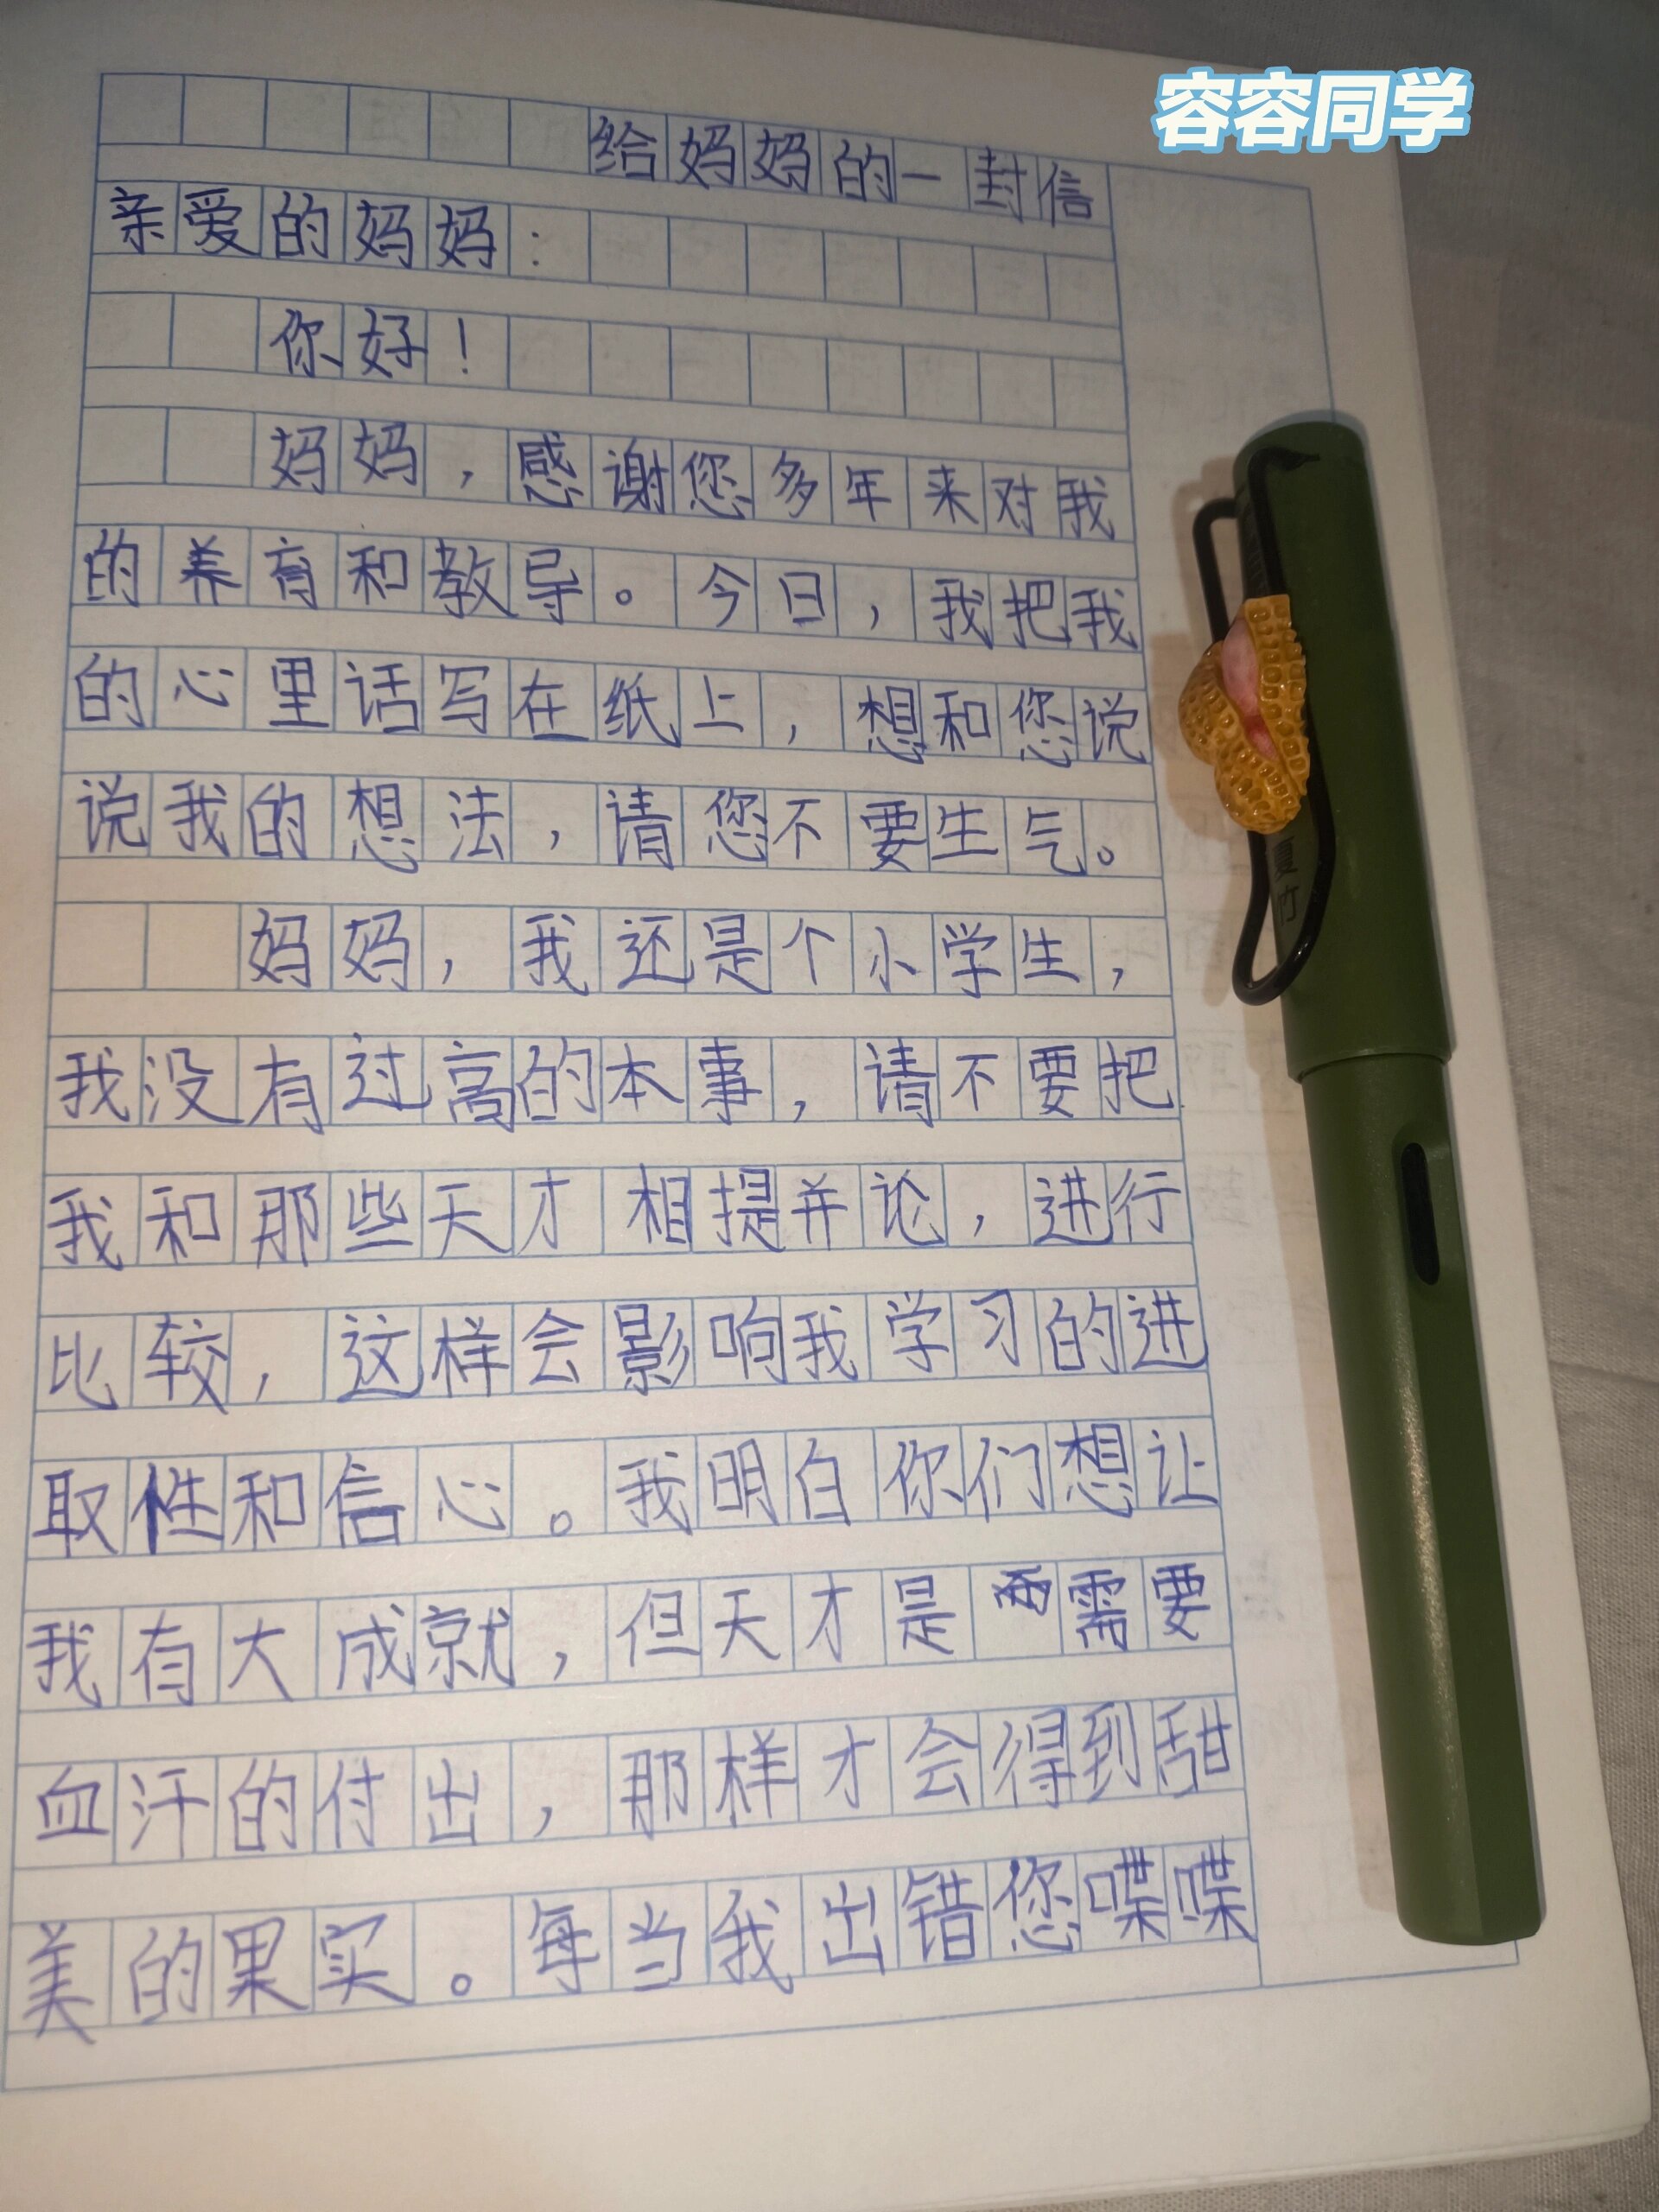 容容同学
给妈妈的一封信
亲爱的妈妈：
你好！
妈妈，感谢您多年来对我
的养育和教导。今日，我把我
的心里话写在纸上，想和您说
说我的想法，请您不要生气。
妈妈，我还是个小学生，
我没有过高的本事，请不要把
我和那些天才相提并论，进行
比较，这样会影响我学习的进
取性和信心。我明白你们想让
我有大成就，但天才是需要
血汗的付出，那样才会得到甜
美的果实。每当我出错您喋喋